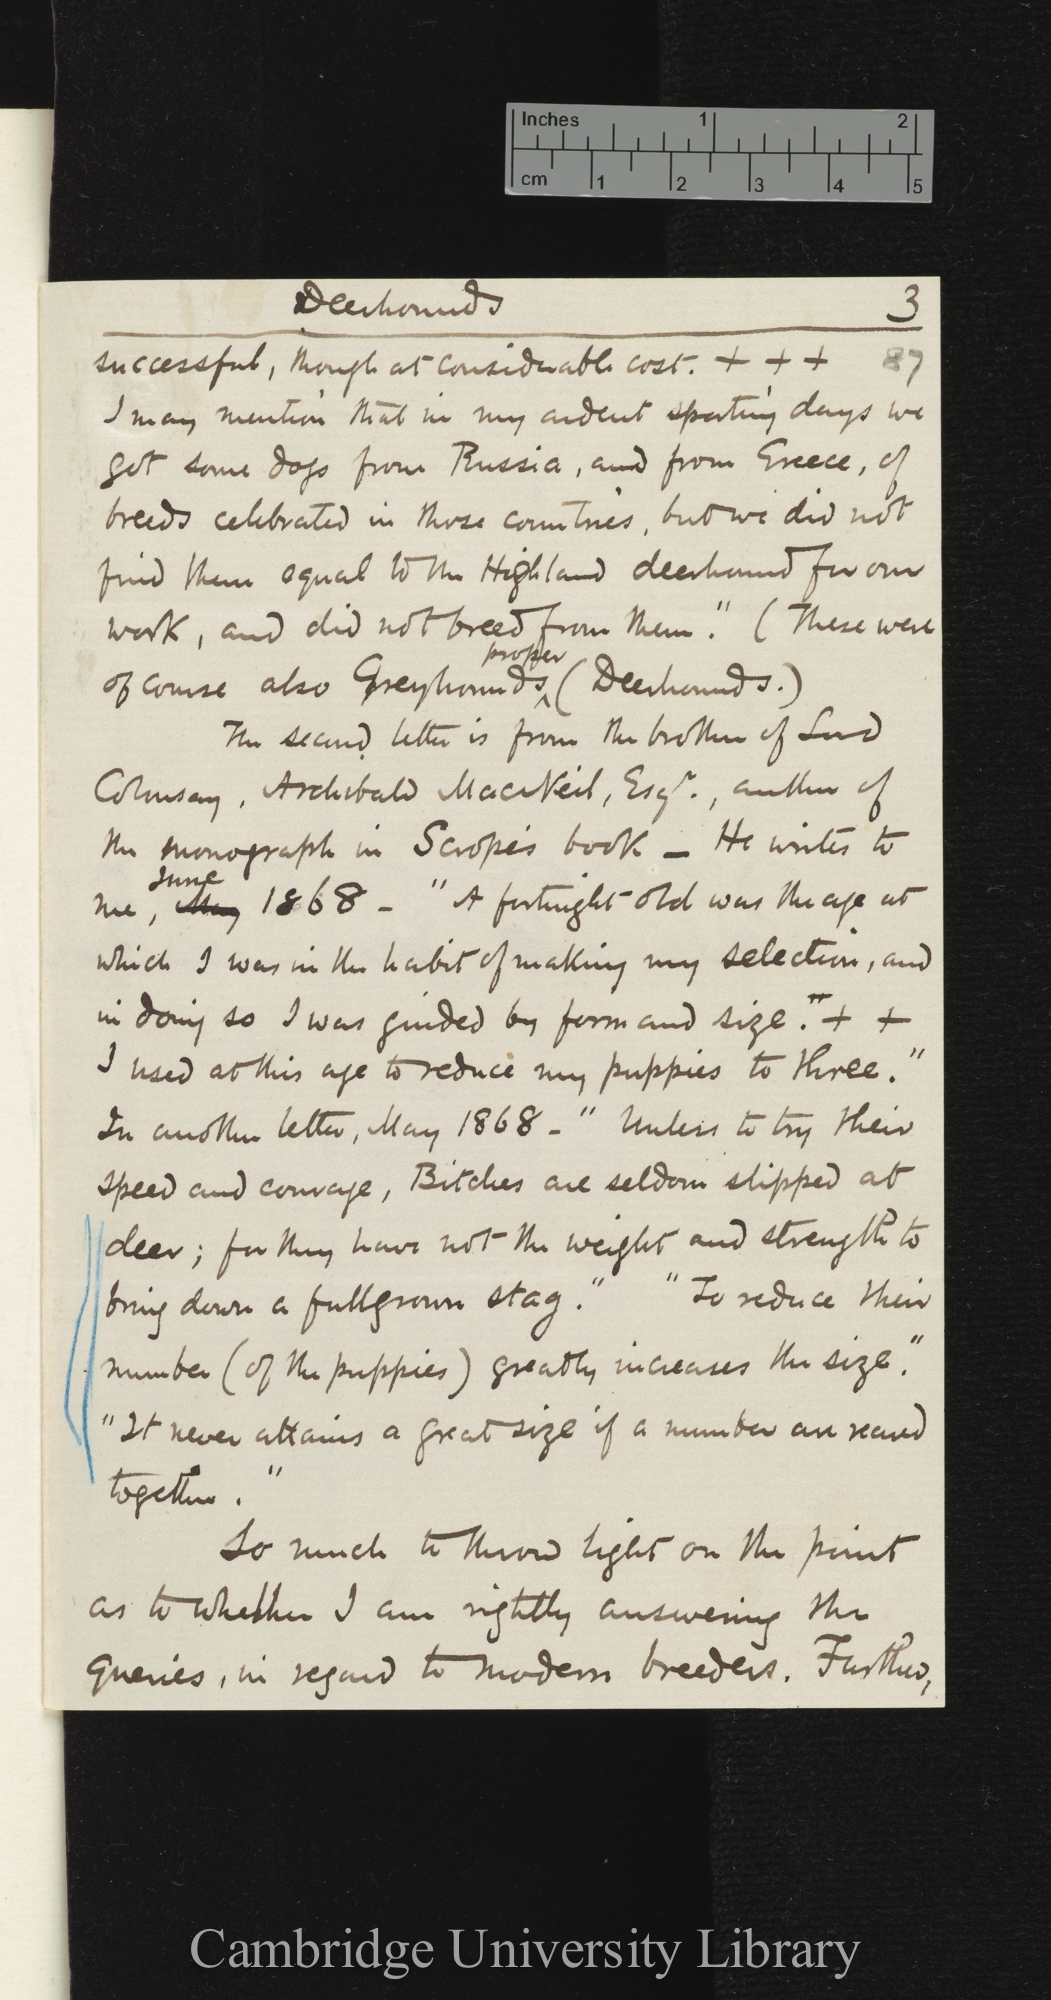 Inches 1 2
cm 1 2 3 4 5
Deerhounds 3
successful, though at considerable cost. + + + 87
I may mention that in my ardent sporting days we
got some dogs from Russia, and from Greece, of
breeds celebrated in those countries, but we did not
find them equal to the Highland deerhound for our
work, and did not breed from them." (These were
proper
of course also Greyhounds, (Deerhounds.)
The second letter is from the brother of Lord
Colonsay, Archibald MacNeil, Esqr., author of
the monograph in Scrope's book – He writes to
June
me, May 1868 – "A fortnight old was the age at
which I was in the habit of making my selection, and
in doing so I was guided by form and size." + +
I used at this age to reduce my puppies to three."
In another letter, May 1868 – "Unless to try their
speed and courage, Bitches are seldom slipped at
deer; for they have not the weight and strength to
bring down a fullgrown stag." "To reduce their
number (of the puppies) greatly increases the size."
"It never attains a great size if a number are reared
together."
So much to throw light on the point
as to whether I am rightly answering the
queries, in regard to modern breeders. Further,
Cambridge University Library